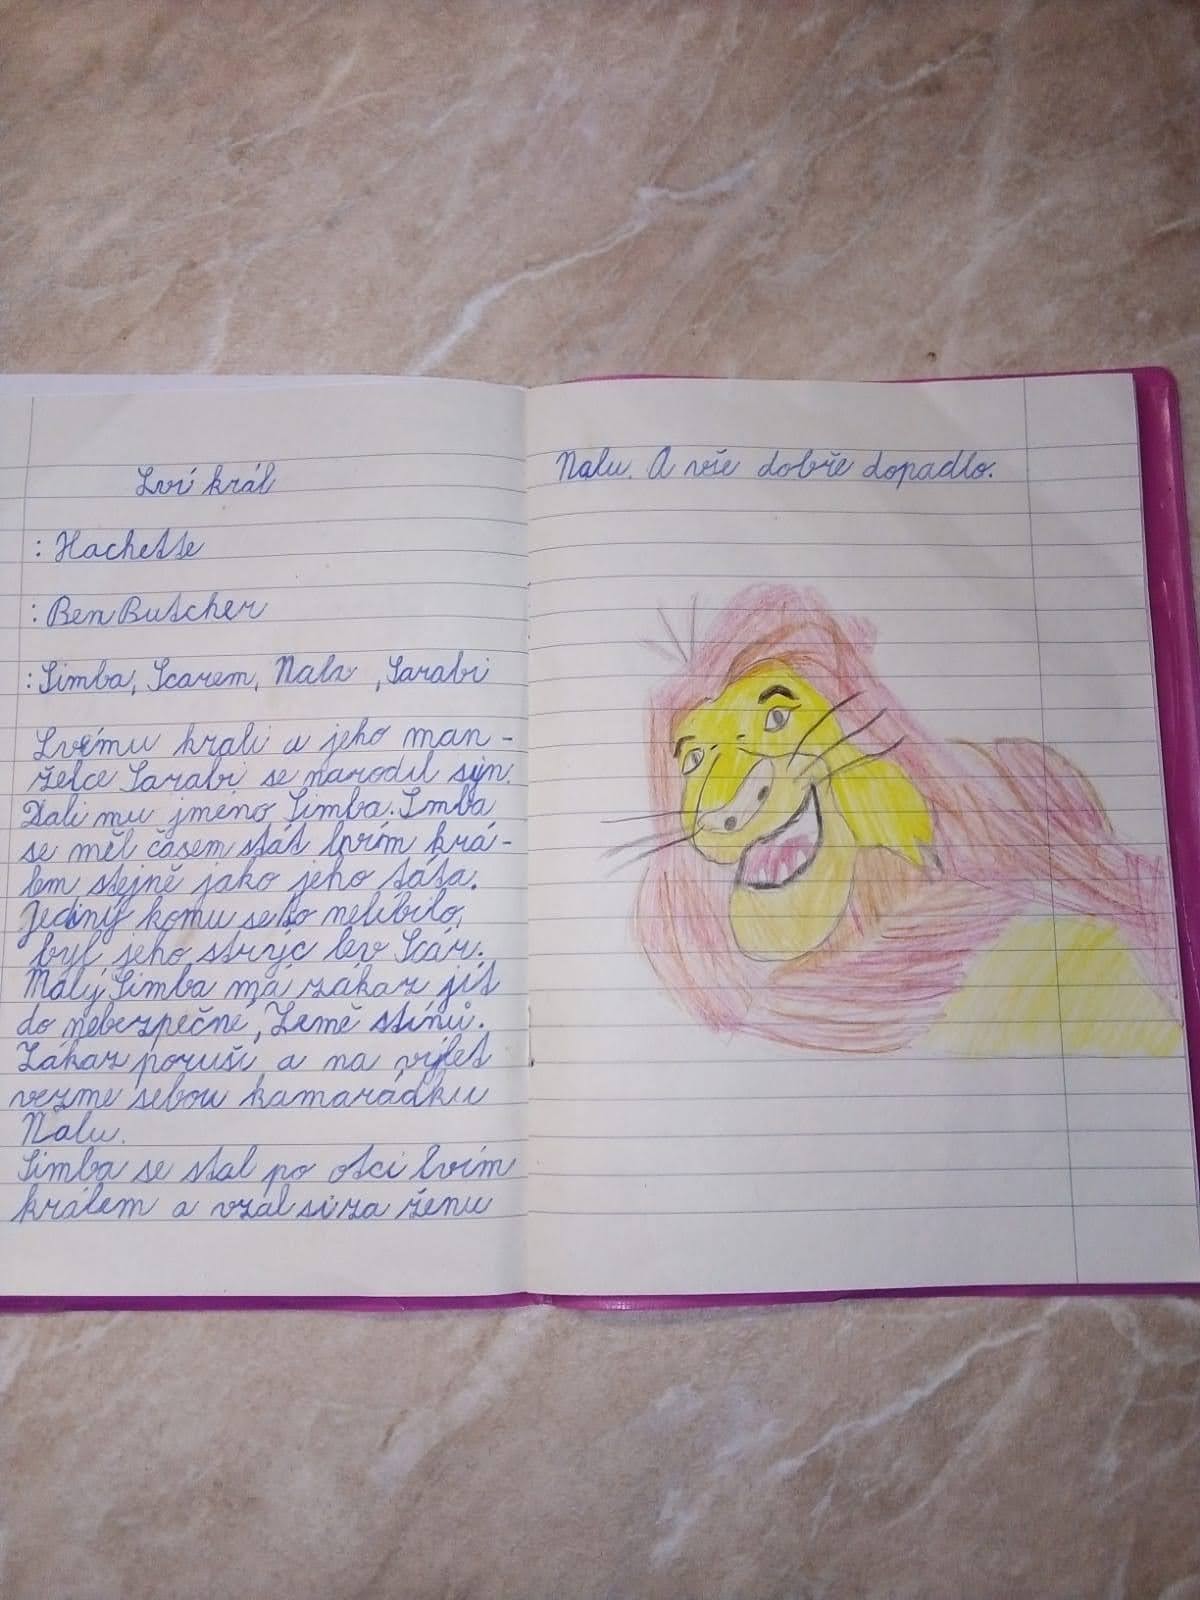 Lví král
: Hachette
: Ben Butcher
: Simba, Scarem, Nala , Sarabi
Lvímu krali a jeho man -
želce Sarabi se narodil syn.
Dali mu jméno Simba. Simba
se měl časem stát lvím krá -
lem stejně jako jeho táta.
Jediný komu se to nelíbilo,
byl jeho strýc lev Scár.
Malý Simba má zákaz jít
do nebezpečné, Země stínů.
Zákaz poruší a na výlet
vezme sebou kamarádku
Nalu.
Simba se stal po otci lvím
králem a vzal si za ženu
Nalu. A vše dobře dopadlo.